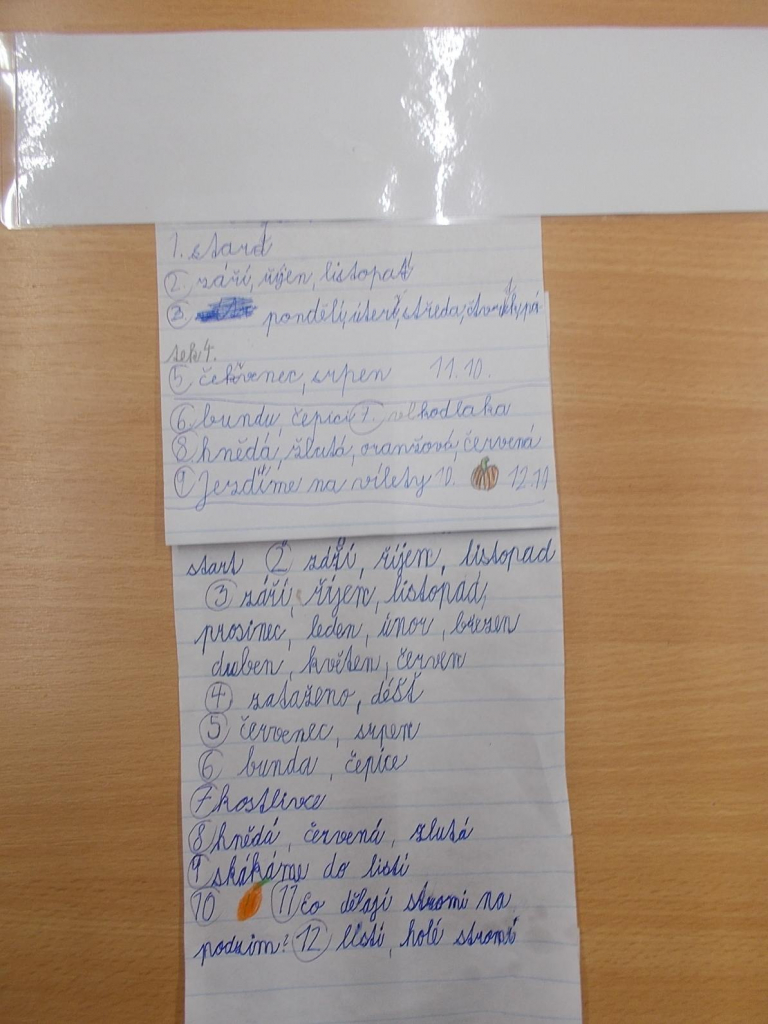 1. start
2. září, říjen, listopat
3 pondělí, úterí, středa, čtvrtek, pá
tek 4.
5 čekvenec, srpen 11. 10.
6. bundu, čepici 7. vlkodlaka
8 hnědá, žlutá, oranžová, červená
9 Jezdíme na vílety 10. 12. 10
start 2 září, říjen, listopad
3 září, říjen, listopad,
prosinec, leden, únor, březen
duben, květen, červen
4 zataženo, déšť
5 červenec, srpen
6 bunda, čepice
7 kostlivce
8 hnědá, červená, zlutá
9 skákáme do listí
10 11 Co dělají stromi na
podzim? 12 listí, holé stromi